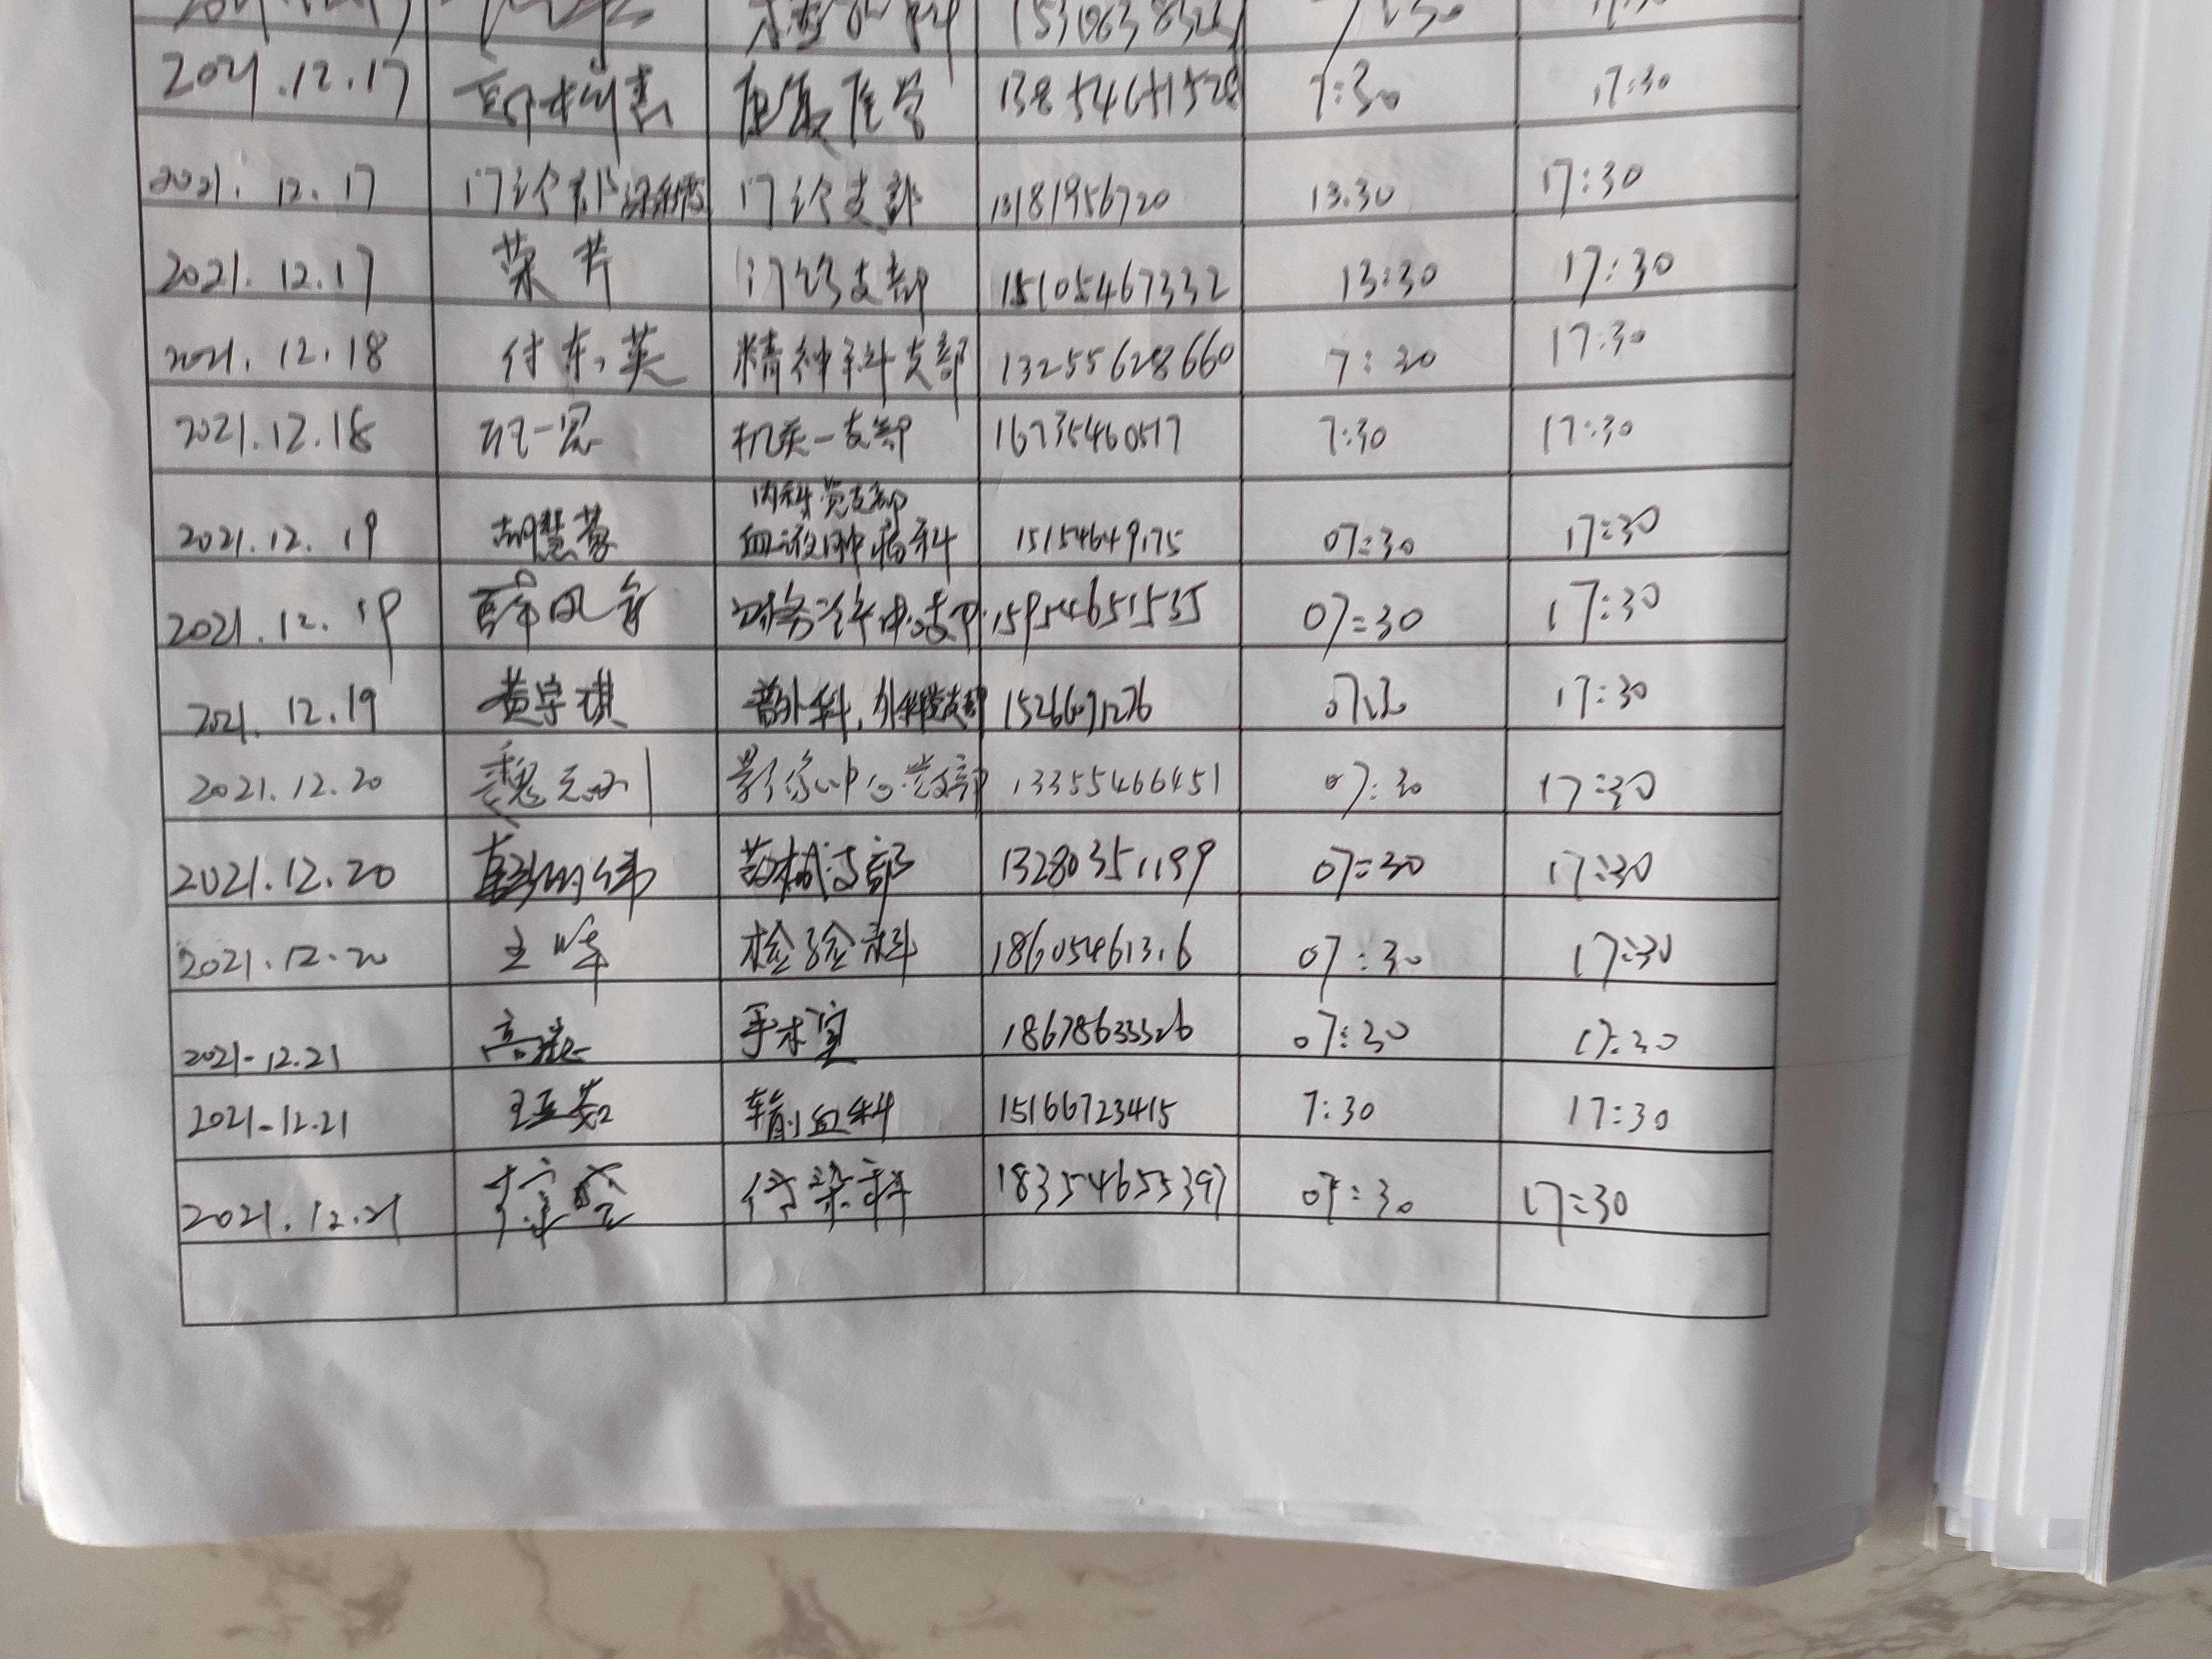 2021.12.17 康复医学 7:30 17:30
2021.12.17 门诊支部 13181956720 13.30 17:30
2021.12.17 荣芹 门诊支部 15105467332 13:30 17:30
2021.12.18 付东英 精神科支部 13255628660 7:30 17:30
2021.12.18 机关一支部 16735460517 7:30 17:30
内科党支部
2021.12.19 胡慧莹 血液肿瘤科 15154649175 07:30 17:30
2021.12.19 薛风 15954651535 07:30 17:30
2021.12.19 黄宇琪 普外科,外科党支部 15266071276 07:30 17:30
2021.12.20 魏 影像中心党支部 13355466451 07:30 17:30
2021.12.20 药械支部 13280351199 07:30 17:30
2021.12.20 王峰 检验科 18605461316 07:30 17:30
2021-12.21 高 手术室 18678633526 07:30 17:30
2021-12.21 王亚茹 输血科 15166723415 7:30 17:30
2021.12.21 传染科 18354655397 07:30 17:30